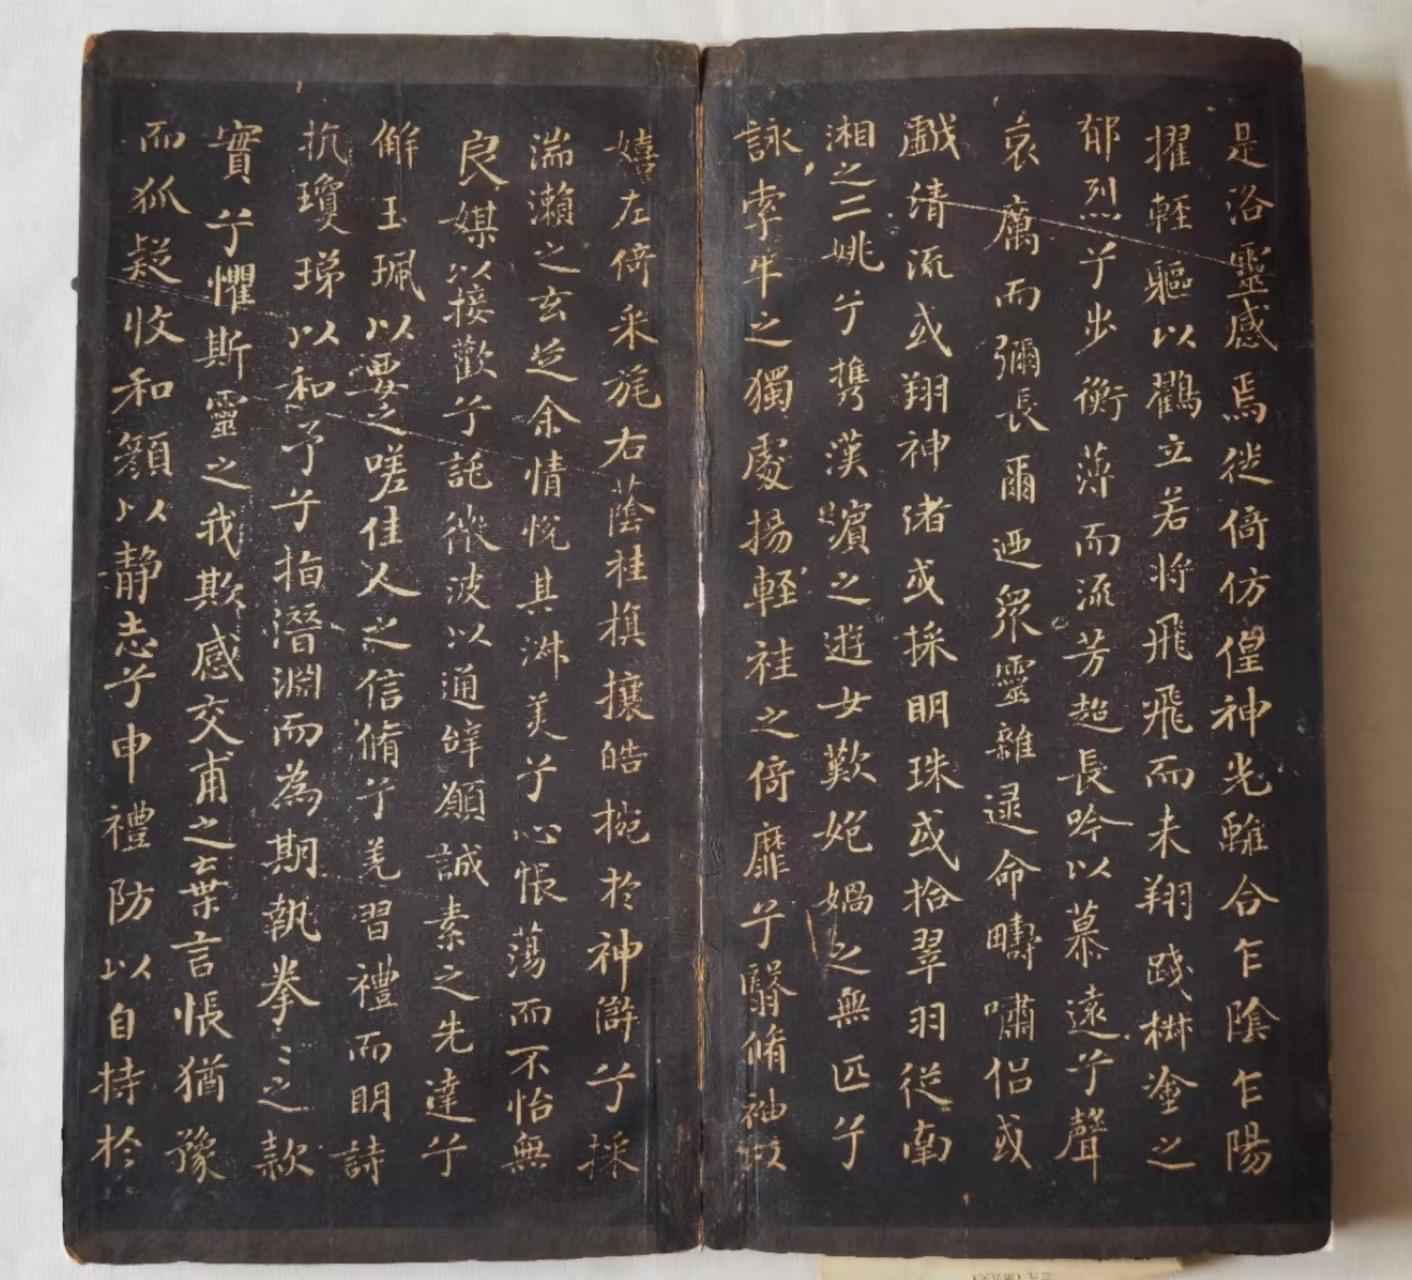 是洛靈感焉徙倚仿偟神光離合乍陰乍陽
擢輕軀以鸛立若将飛飛而未翔踐椒塗之
郁烈兮步衡薄而流芳超長吟以慕遠兮聲
哀厲而彌長爾迺衆靈雜逯命疇嘯侣或
戲清流或翔神渚或採明珠或拾翠羽從南
湘之二姚兮携漢濱之遊女歎匏媧之無匹兮
詠牽牛之獨處揚輕袿之倚靡兮翳脩袖
嬉左倚采旄右蔭桂旗攘皓捥於神滸兮採
湍瀨之玄芝余情悅其淋美兮心悵蕩而不怡無
良媒以接歡兮託微波以通辝願誠素之先達兮
解玉珮以要之嗟佳人之信脩兮羌習禮而明詩
抗瓊珶以和予兮指潛淵而為期執拳〻之款
實兮懼斯靈之我欺感交甫之棄言悵猶豫
而狐疑收和顏以靜志兮申禮防以自持於